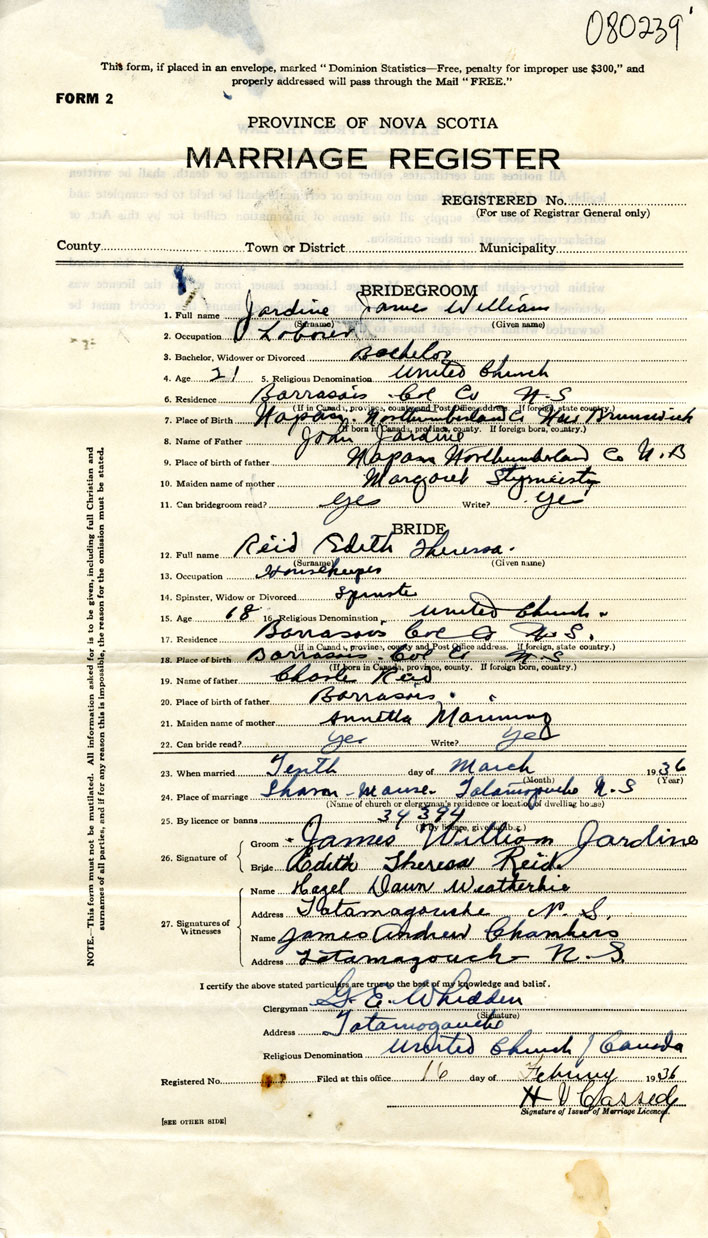 080239
This form, if placed in an envelope, marked "Dominion Statistics—Free, penalty for improper use $300," and
properly addressed will pass through the Mail "FREE."
FORM 2
PROVINCE OF NOVA SCOTIA
MARRIAGE REGISTER
REGISTERED No.
(For use of Registrar General only)
County Town or District Municipality
BRIDEGROOM
1. Full name Jardine James William
(Surname) (Given name)
2. Occupation Laborer
3. Bachelor, Widower or Divorced Bachelor
4. Age 21 5. Religious Denomination United Church
6. Residence Barrasois Col Co N-S
(If in Canada, province, county and Post Office address. If foreign, state country.)
7. Place of Birth Napan Northumberland Co New Brunswick
(If born in Canada, province, county. If foreign born, country.)
8. Name of Father John Jardine
9. Place of birth of father Napan Northumberland Co N.B
10. Maiden name of mother Margaret Stymeisty
11. Can bridegroom read? Yes Write? Yes
BRIDE
12. Full name Reid Edith Theresa.
(Surname) (Given name)
13. Occupation Housekeeper
14. Spinster, Widow or Divorced Spinster
15. Age 18 16. Religious Denomination United Church.
17. Residence Barrasois Col Co N.S.
(If in Canada, province, county and Post Office address. If foreign, state country.)
18. Place of birth Barrasois Col Co N-S
(If born in Canada, province, county. If foreign born, country.)
19. Name of father Charles Reid
20. Place of birth of father Barrasois.
21. Maiden name of mother Annetta Manning
22. Can bride read? Yes Write? Yes
23. When married Tenth day of March 1936
(Month) (Year)
24. Place of marriage Sharon-Manse. Tatamagouche N.S
(Name of church or clergyman's residence or location of dwelling house)
25. By licence or banns 34394
(If by licence, give number.)
26. Signature of Groom James William Jardine
Bride Edith Theresa Reid
27. Signatures of Witnesses Name Hazel Dawn Weatherbie
Address Tatamagouche N.S.
Name James Andrew Chambers
Address Tatamagouche N.S.
I certify the above stated particulars are true to the best of my knowledge and belief.
Clergyman G. E. Whidden
(Signature)
Address Tatamagouche
Religious Denomination United Church / Canada
Registered No. Filed at this office 16 day of February 1936
H V Cassedy
Signature of Issuer of Marriage Licences.
[SEE OTHER SIDE]
NOTE.—This form must not be mutilated. All information asked for is to be given, including full Christian and
surnames of all parties, and if for any reason this is impossible, the reason for the omission must be stated.